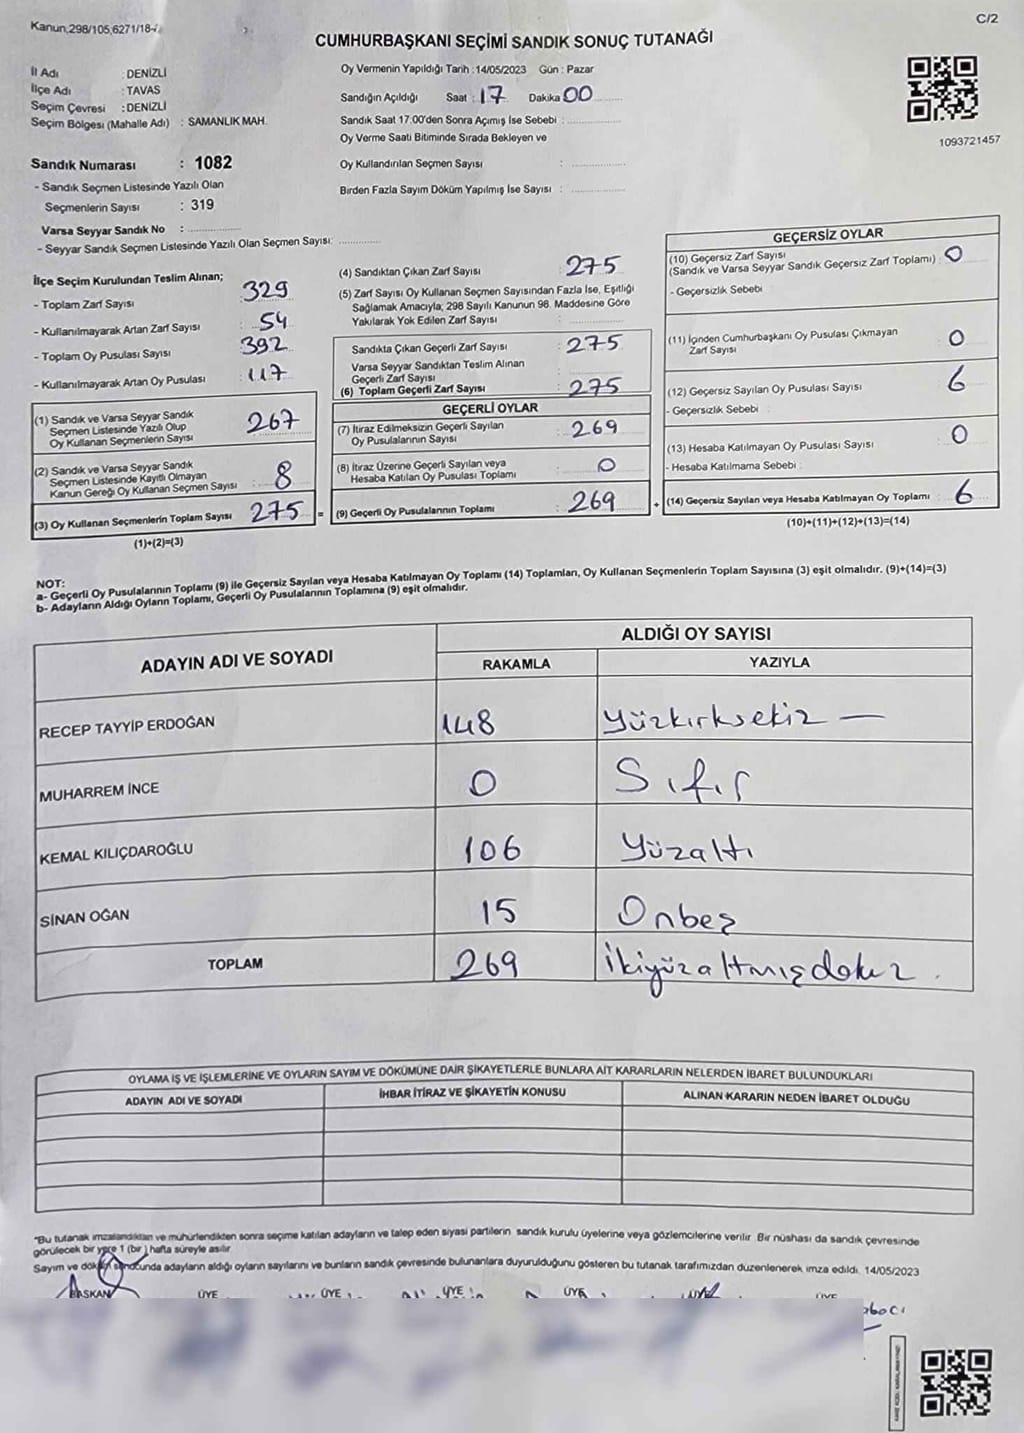 Kanun,298/105,6271/18-
C/2
CUMHURBAŞKANI SEÇİMİ SANDIK SONUÇ TUTANAĞI
İl Adı : DENİZLİ
İlçe Adı : TAVAS
Seçim Çevresi : DENİZLİ
Seçim Bölgesi (Mahalle Adı) : SAMANLIK MAH.
Sandık Numarası : 1082
- Sandık Seçmen Listesinde Yazılı Olan
Seçmenlerin Sayısı : 319
Varsa Seyyar Sandık No :
- Seyyar Sandık Seçmen Listesinde Yazılı Olan Seçmen Sayısı:
Oy Vermenin Yapıldığı Tarih : 14/05/2023 Gün : Pazar
Sandığın Açıldığı Saat : 17 Dakika 00
Sandık Saat 17.00'den Sonra Açımış İse Sebebi :
Oy Verme Saati Bitiminde Sırada Bekleyen ve
Oy Kullandırılan Seçmen Sayısı :
Birden Fazla Sayım Döküm Yapılmış İse Sayısı :
1093721457
İlçe Seçim Kurulundan Teslim Alınan;
- Toplam Zarf Sayısı : 329
- Kullanılmayarak Artan Zarf Sayısı : 54
- Toplam Oy Pusulası Sayısı : 392
- Kullanılmayarak Artan Oy Pusulası : 117
(1) Sandık ve Varsa Seyyar Sandık
Seçmen Listesinde Yazılı Olup
Oy Kullanan Seçmenlerin Sayısı : 267
(2) Sandık ve Varsa Seyyar Sandık
Seçmen Listesinde Kayıtlı Olmayan
Kanun Gereği Oy Kullanan Seçmen Sayısı : 8
(3) Oy Kullanan Seçmenlerin Toplam Sayısı : 275 =
(1)+(2)=(3)
(4) Sandıktan Çıkan Zarf Sayısı : 275
(5) Zarf Sayısı Oy Kullanan Seçmen Sayısından Fazla İse, Eşitliği
Sağlamak Amacıyla; 298 Sayılı Kanunun 98. Maddesine Göre
Yakılarak Yok Edilen Zarf Sayısı :
Sandıkta Çıkan Geçerli Zarf Sayısı : 275
Varsa Seyyar Sandıktan Teslim Alınan
Geçerli Zarf Sayısı :
(6) Toplam Geçerli Zarf Sayısı : 275
GEÇERLİ OYLAR
(7) İtiraz Edilmeksizin Geçerli Sayılan
Oy Pusulalarının Sayısı : 269
(8) İtiraz Üzerine Geçerli Sayılan veya
Hesaba Katılan Oy Pusulası Toplamı : 0
(9) Geçerli Oy Pusulalarının Toplamı : 269 +
GEÇERSİZ OYLAR
(10) Geçersiz Zarf Sayısı
(Sandık ve Varsa Seyyar Sandık Geçersiz Zarf Toplamı) : 0
- Geçersizlik Sebebi :
(11) İçinden Cumhurbaşkanı Oy Pusulası Çıkmayan
Zarf Sayısı : 0
(12) Geçersiz Sayılan Oy Pusulası Sayısı : 6
- Geçersizlik Sebebi :
(13) Hesaba Katılmayan Oy Pusulası Sayısı : 0
- Hesaba Katılmama Sebebi :
(14) Geçersiz Sayılan veya Hesaba Katılmayan Oy Toplamı : 6
(10)+(11)+(12)+(13)=(14)
NOT:
a- Geçerli Oy Pusulalarının Toplamı (9) ile Geçersiz Sayılan veya Hesaba Katılmayan Oy Toplamı (14) Toplamları, Oy Kullanan Seçmenlerin Toplam Sayısına (3) eşit olmalıdır. (9)+(14)=(3)
b- Adayların Aldığı Oyların Toplamı, Geçerli Oy Pusulalarının Toplamına (9) eşit olmalıdır.
ADAYIN ADI VE SOYADI ALDIĞI OY SAYISI
RAKAMLA YAZIYLA
RECEP TAYYİP ERDOĞAN 148 Yüzkırksekiz —
MUHARREM İNCE 0 Sıfır
KEMAL KILIÇDAROĞLU 106 Yüzaltı
SİNAN OĞAN 15 Onbeş
TOPLAM 269 İkiyüzaltmışdokuz .
OYLAMA İŞ VE İŞLEMLERİNE VE OYLARIN SAYIM VE DÖKÜMÜNE DAİR ŞİKAYETLERLE BUNLARA AİT KARARLARIN NELERDEN İBARET BULUNDUKLARI
ADAYIN ADI VE SOYADI İHBAR İTİRAZ VE ŞİKAYETİN KONUSU ALINAN KARARIN NEDEN İBARET OLDUĞU
"Bu tutanak imzalandıktan ve mühürlendikten sonra seçime katılan adayların ve talep eden siyasi partilerin sandık kurulu üyelerine veya gözlemcilerine verilir. Bir nüshası da sandık çevresinde
görülecek bir yere 1 (bir) hafta süreyle asılır.
Sayım ve döküm sonucunda adayların aldığı oyların sayılarını ve bunların sandık çevresinde bulunanlara duyurulduğunu gösteren bu tutanak tarafımızdan düzenlenerek imza edildi. 14/05/2023
BAŞKAN ÜYE ÜYE ÜYE ÜYE ÜYE ÜYE